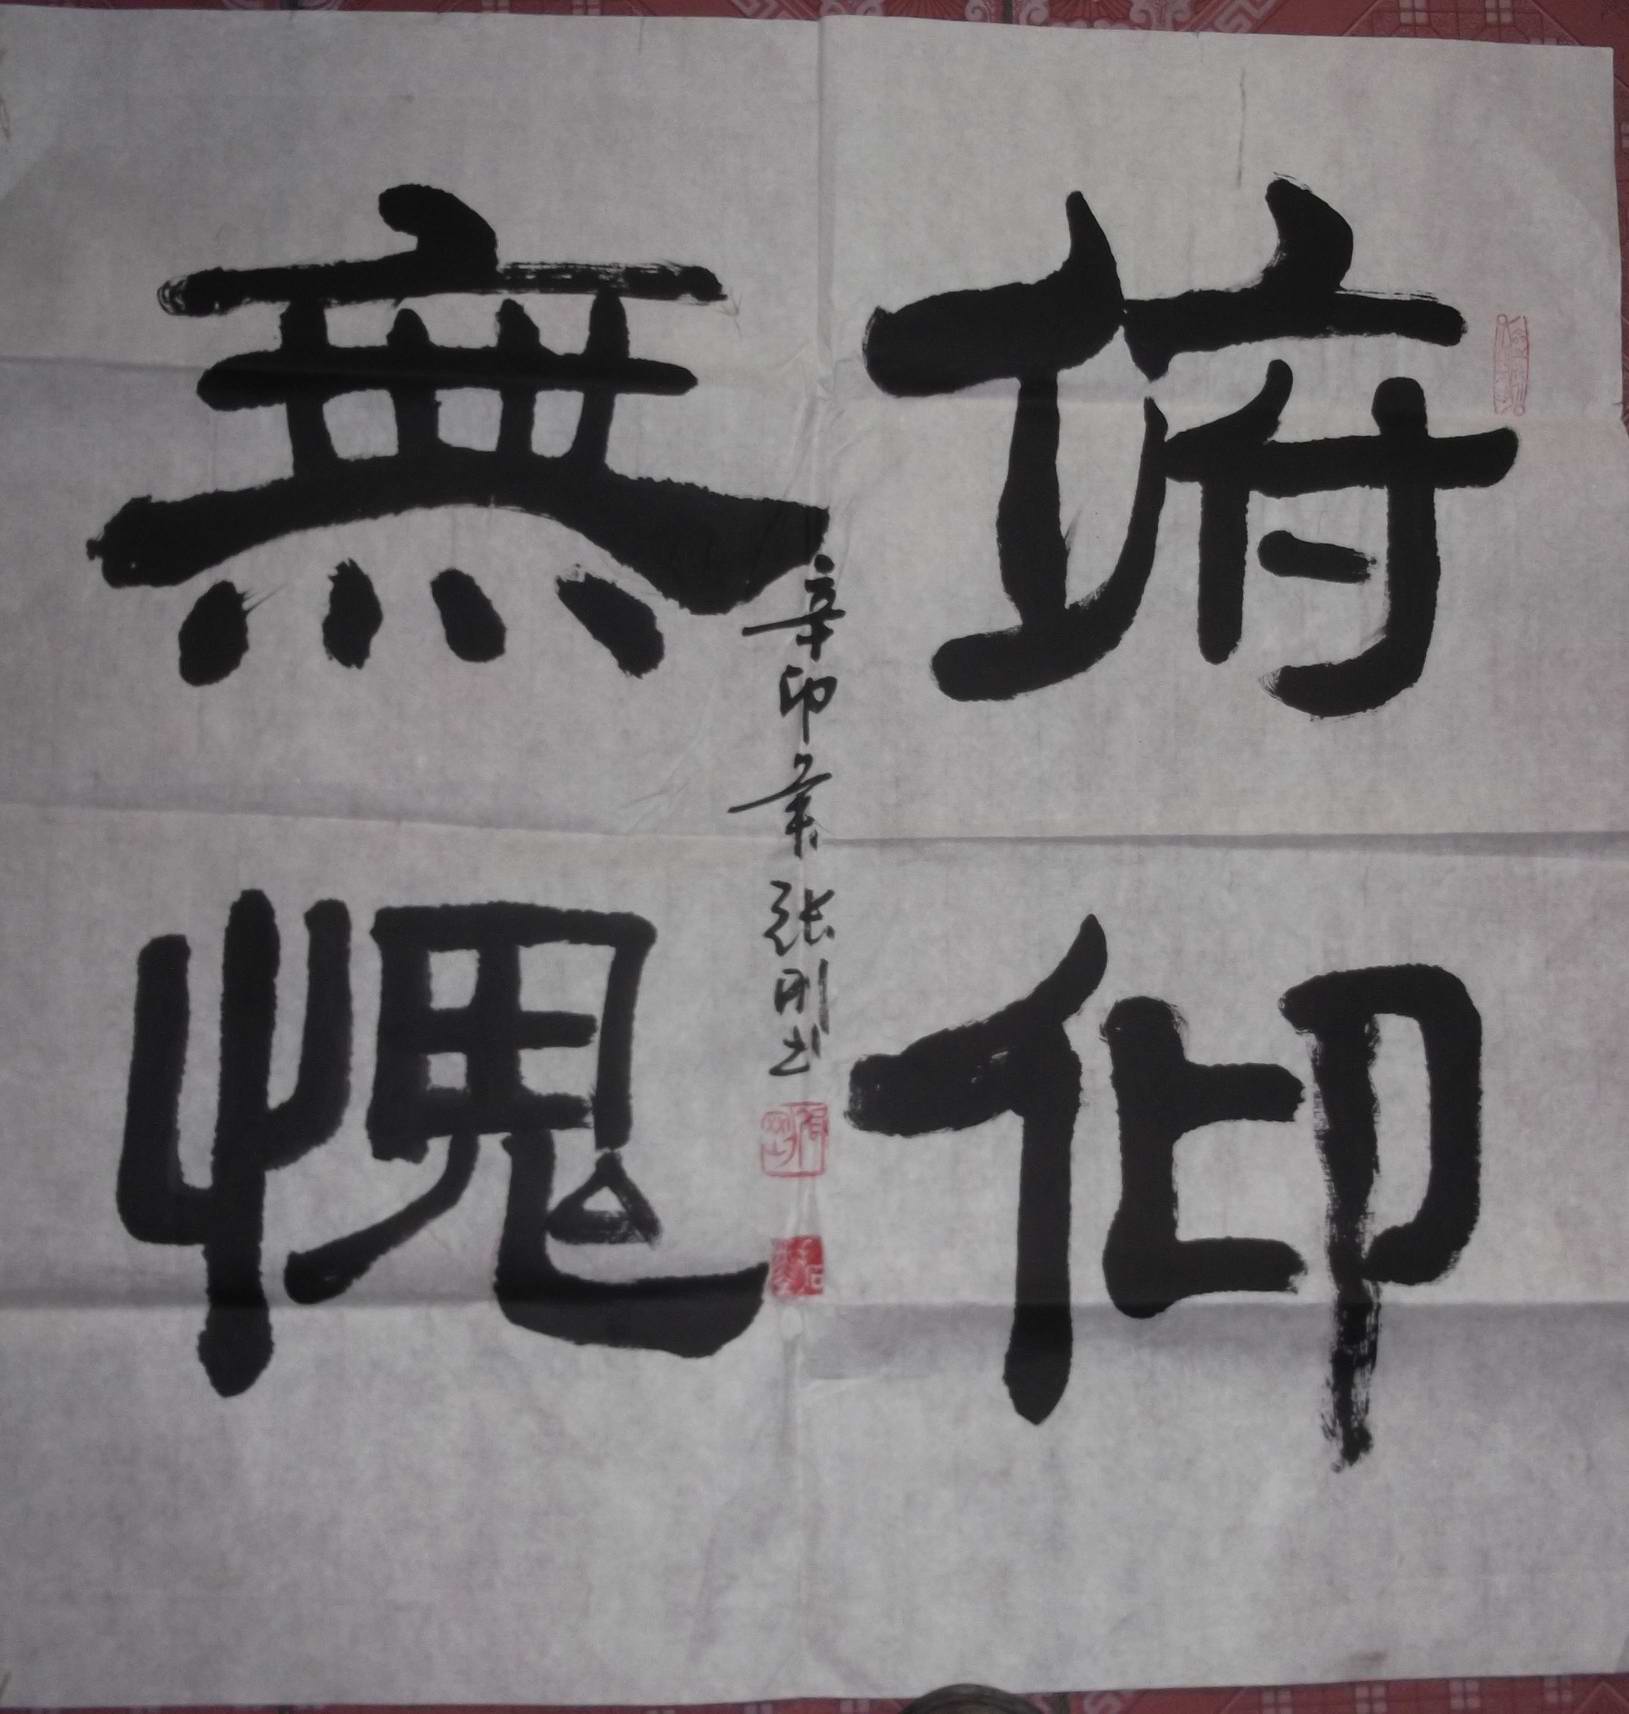 俯仰
無愧
辛卯業张刚书